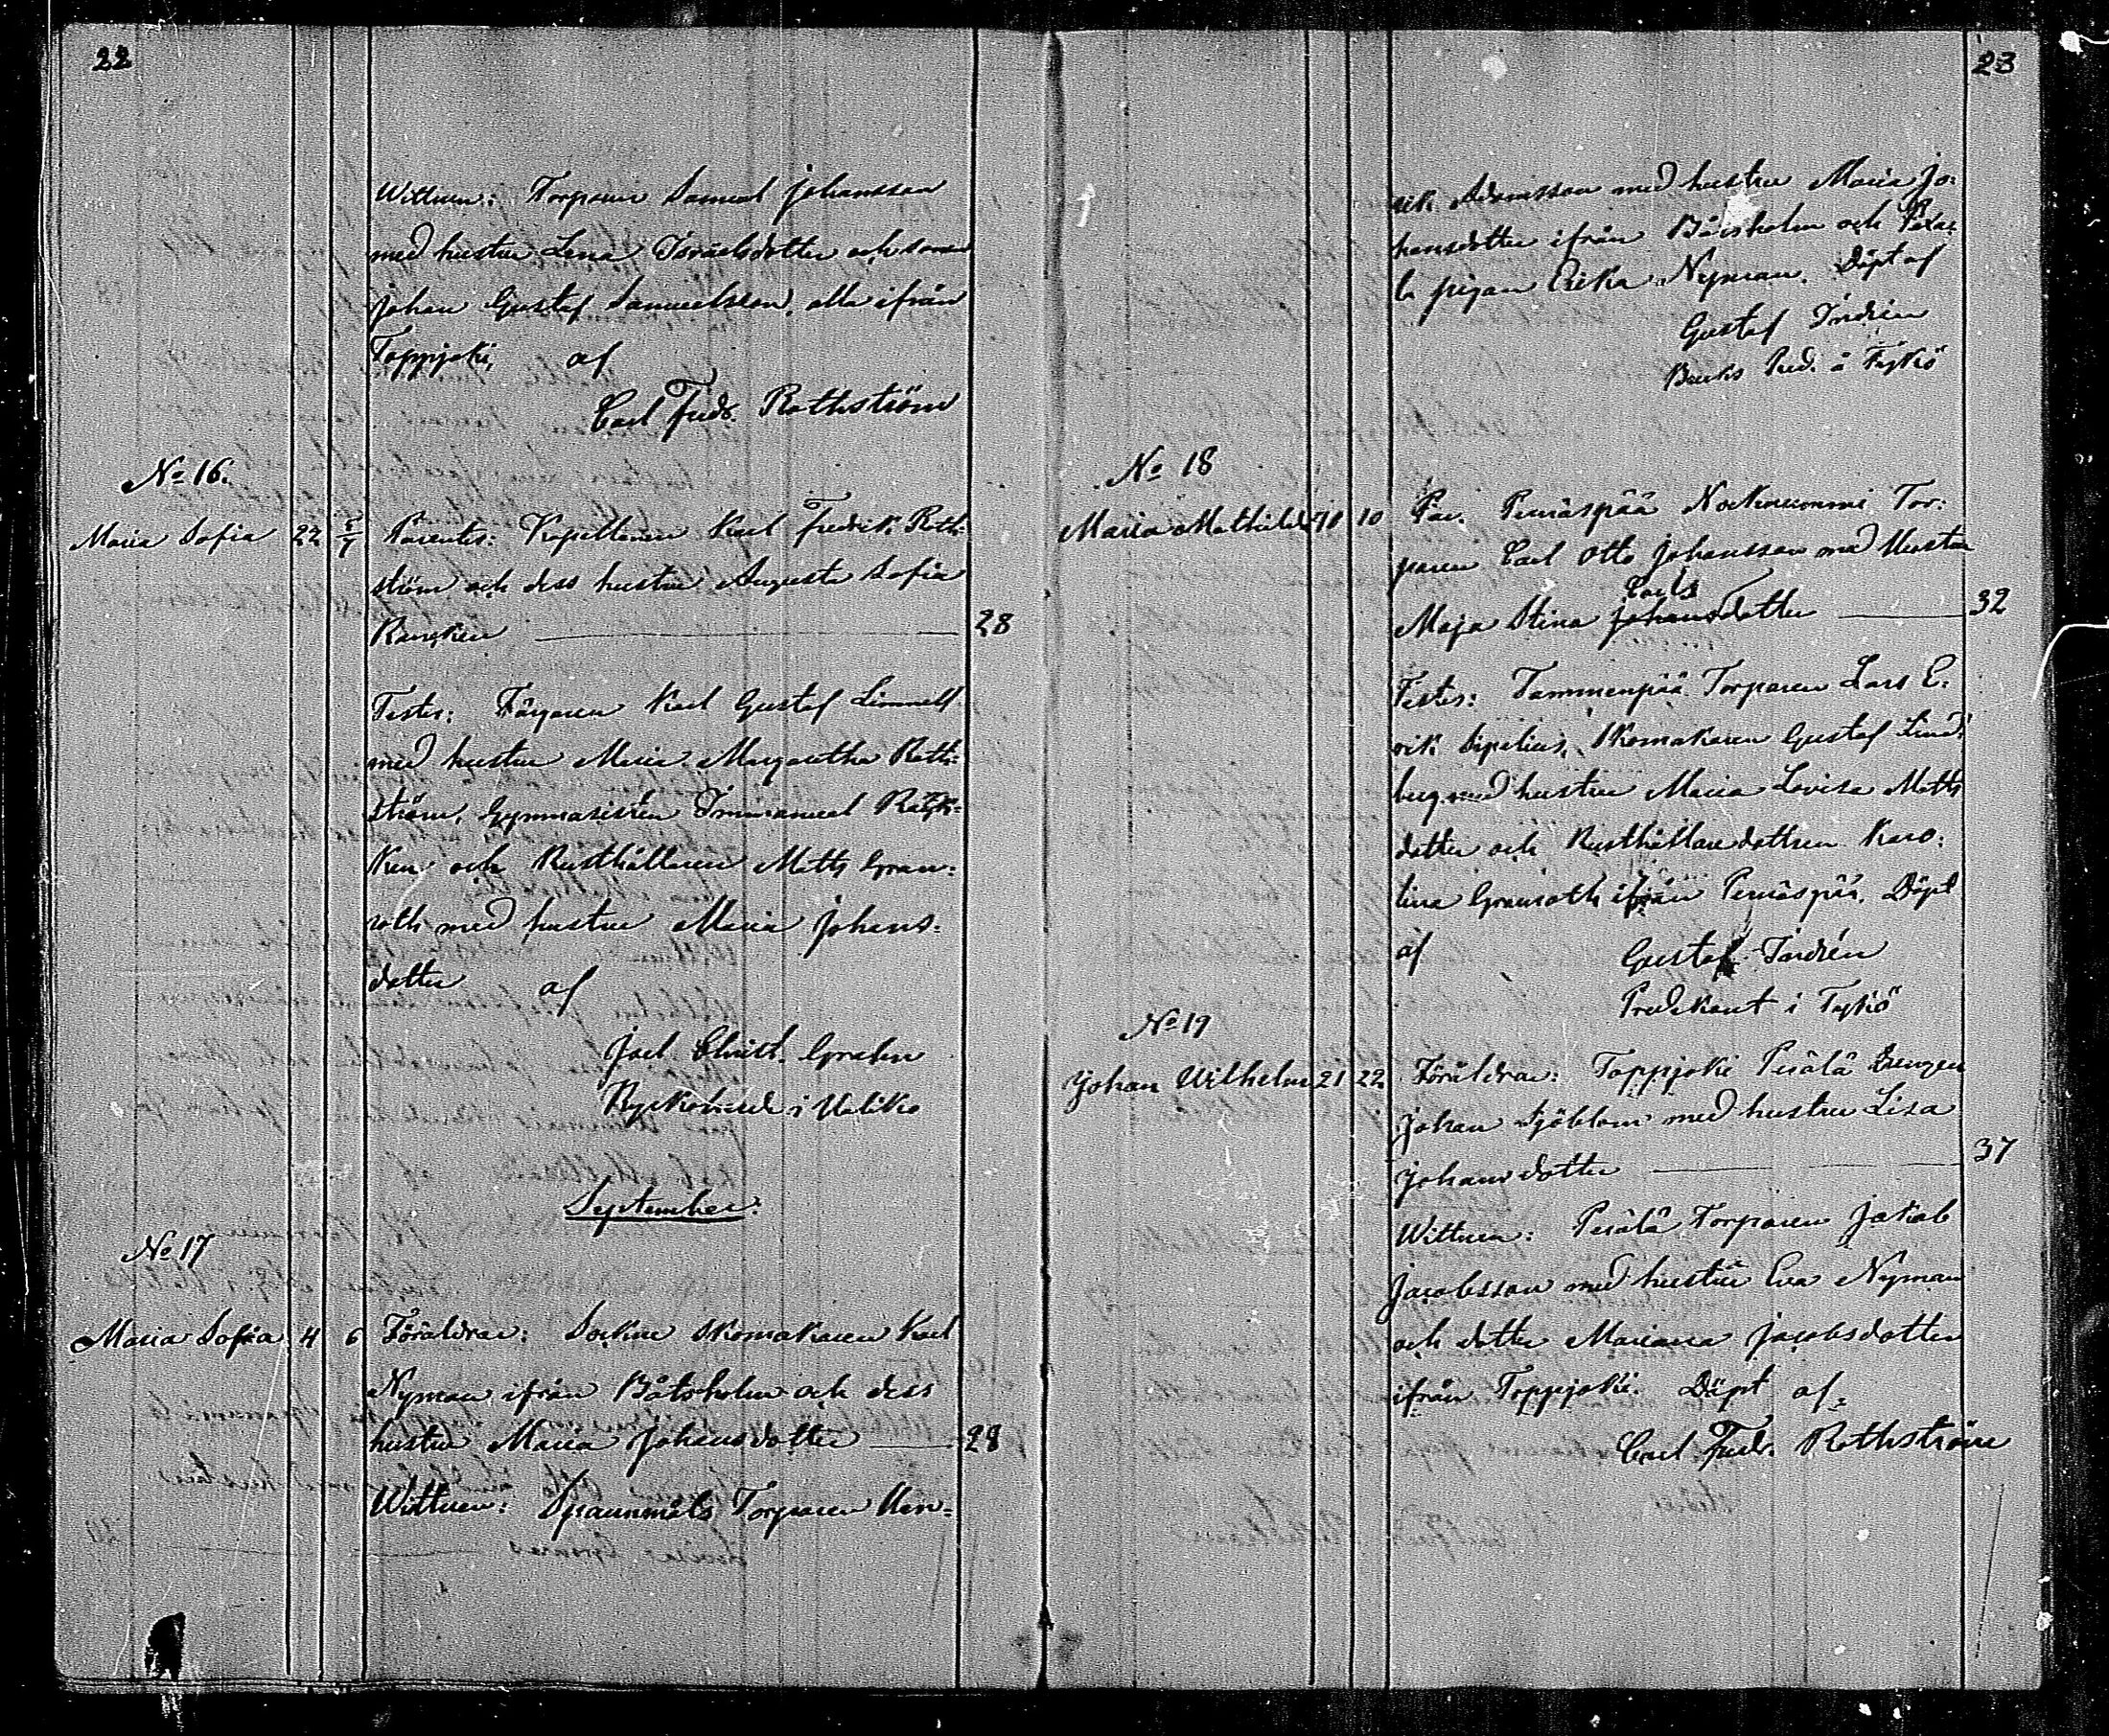 22
Wittnen: Torparen Samuel Johansson
med hustru Lena Israelsdotter och sonen
Johan Gustaf Samuelsson, alla ifrån
Toppjoki, af
Carl Fredr. Rothström
No 16.
Maria Sofia 22 5/7 Parentes: Kapellanen Karl Fredrik Roth-
ström och dess hustru Augusta Sofia
Rancken 28
Testes: Färgaren Karl Gustaf Limnell
med hustru Maria Margaretha Roth-
ström, Gymnasisten Immanuel Ranc-
ken och Rusthållaren Matts Gran-
roth med hustru Maria Johans-
dotter af
Joel Christ. Grahn
i Haliko
September.
No 17
Maria Sofia 4 6 Föräldrar: Sockne skomakaren Karl
Nyman ifrån Båtsholm och dess
hustru Maria Johansdotter 28
Wittnen: Spaunmäls Torparen Hen-
23
rik Adamsson med hustru Maria Jo-
hansdotter ifrån och
pigan Erika Nyman. Döpt af
Gustaf Indrén
Bruks Pred. å Tykö
No 18
Maria Mathilda 10 10 Par. Peräspää Torparen
Carl Otto Johansson med Hustru
Carls
Maja Stina Johansdotter 32
Testes: Tammenpää Torparen Lars E-
rik Sipelius, Skomakaren Gustaf Lind-
berg med hustru Maria Lovisa Matts
dotter och Rusthållare dottren Karo-
lina Granroth ifrån Peräspää. Döpt
af Gustaf Indrén
Predikant i Tykö
No 19
Johan Wilhelm 21 22 Föräldrar: Toppjoki Perälä Drengen
Johan Sjöblom med hustru Lisa
Johansdotter 37
Wittnen: Perälä Torparen Jakob
Jacobsson med hustru Eva Nyman
och dotter Mariana Jacobsdotter
ifrån Toppjoki. Döpt af
Carl Fredr. Rothström